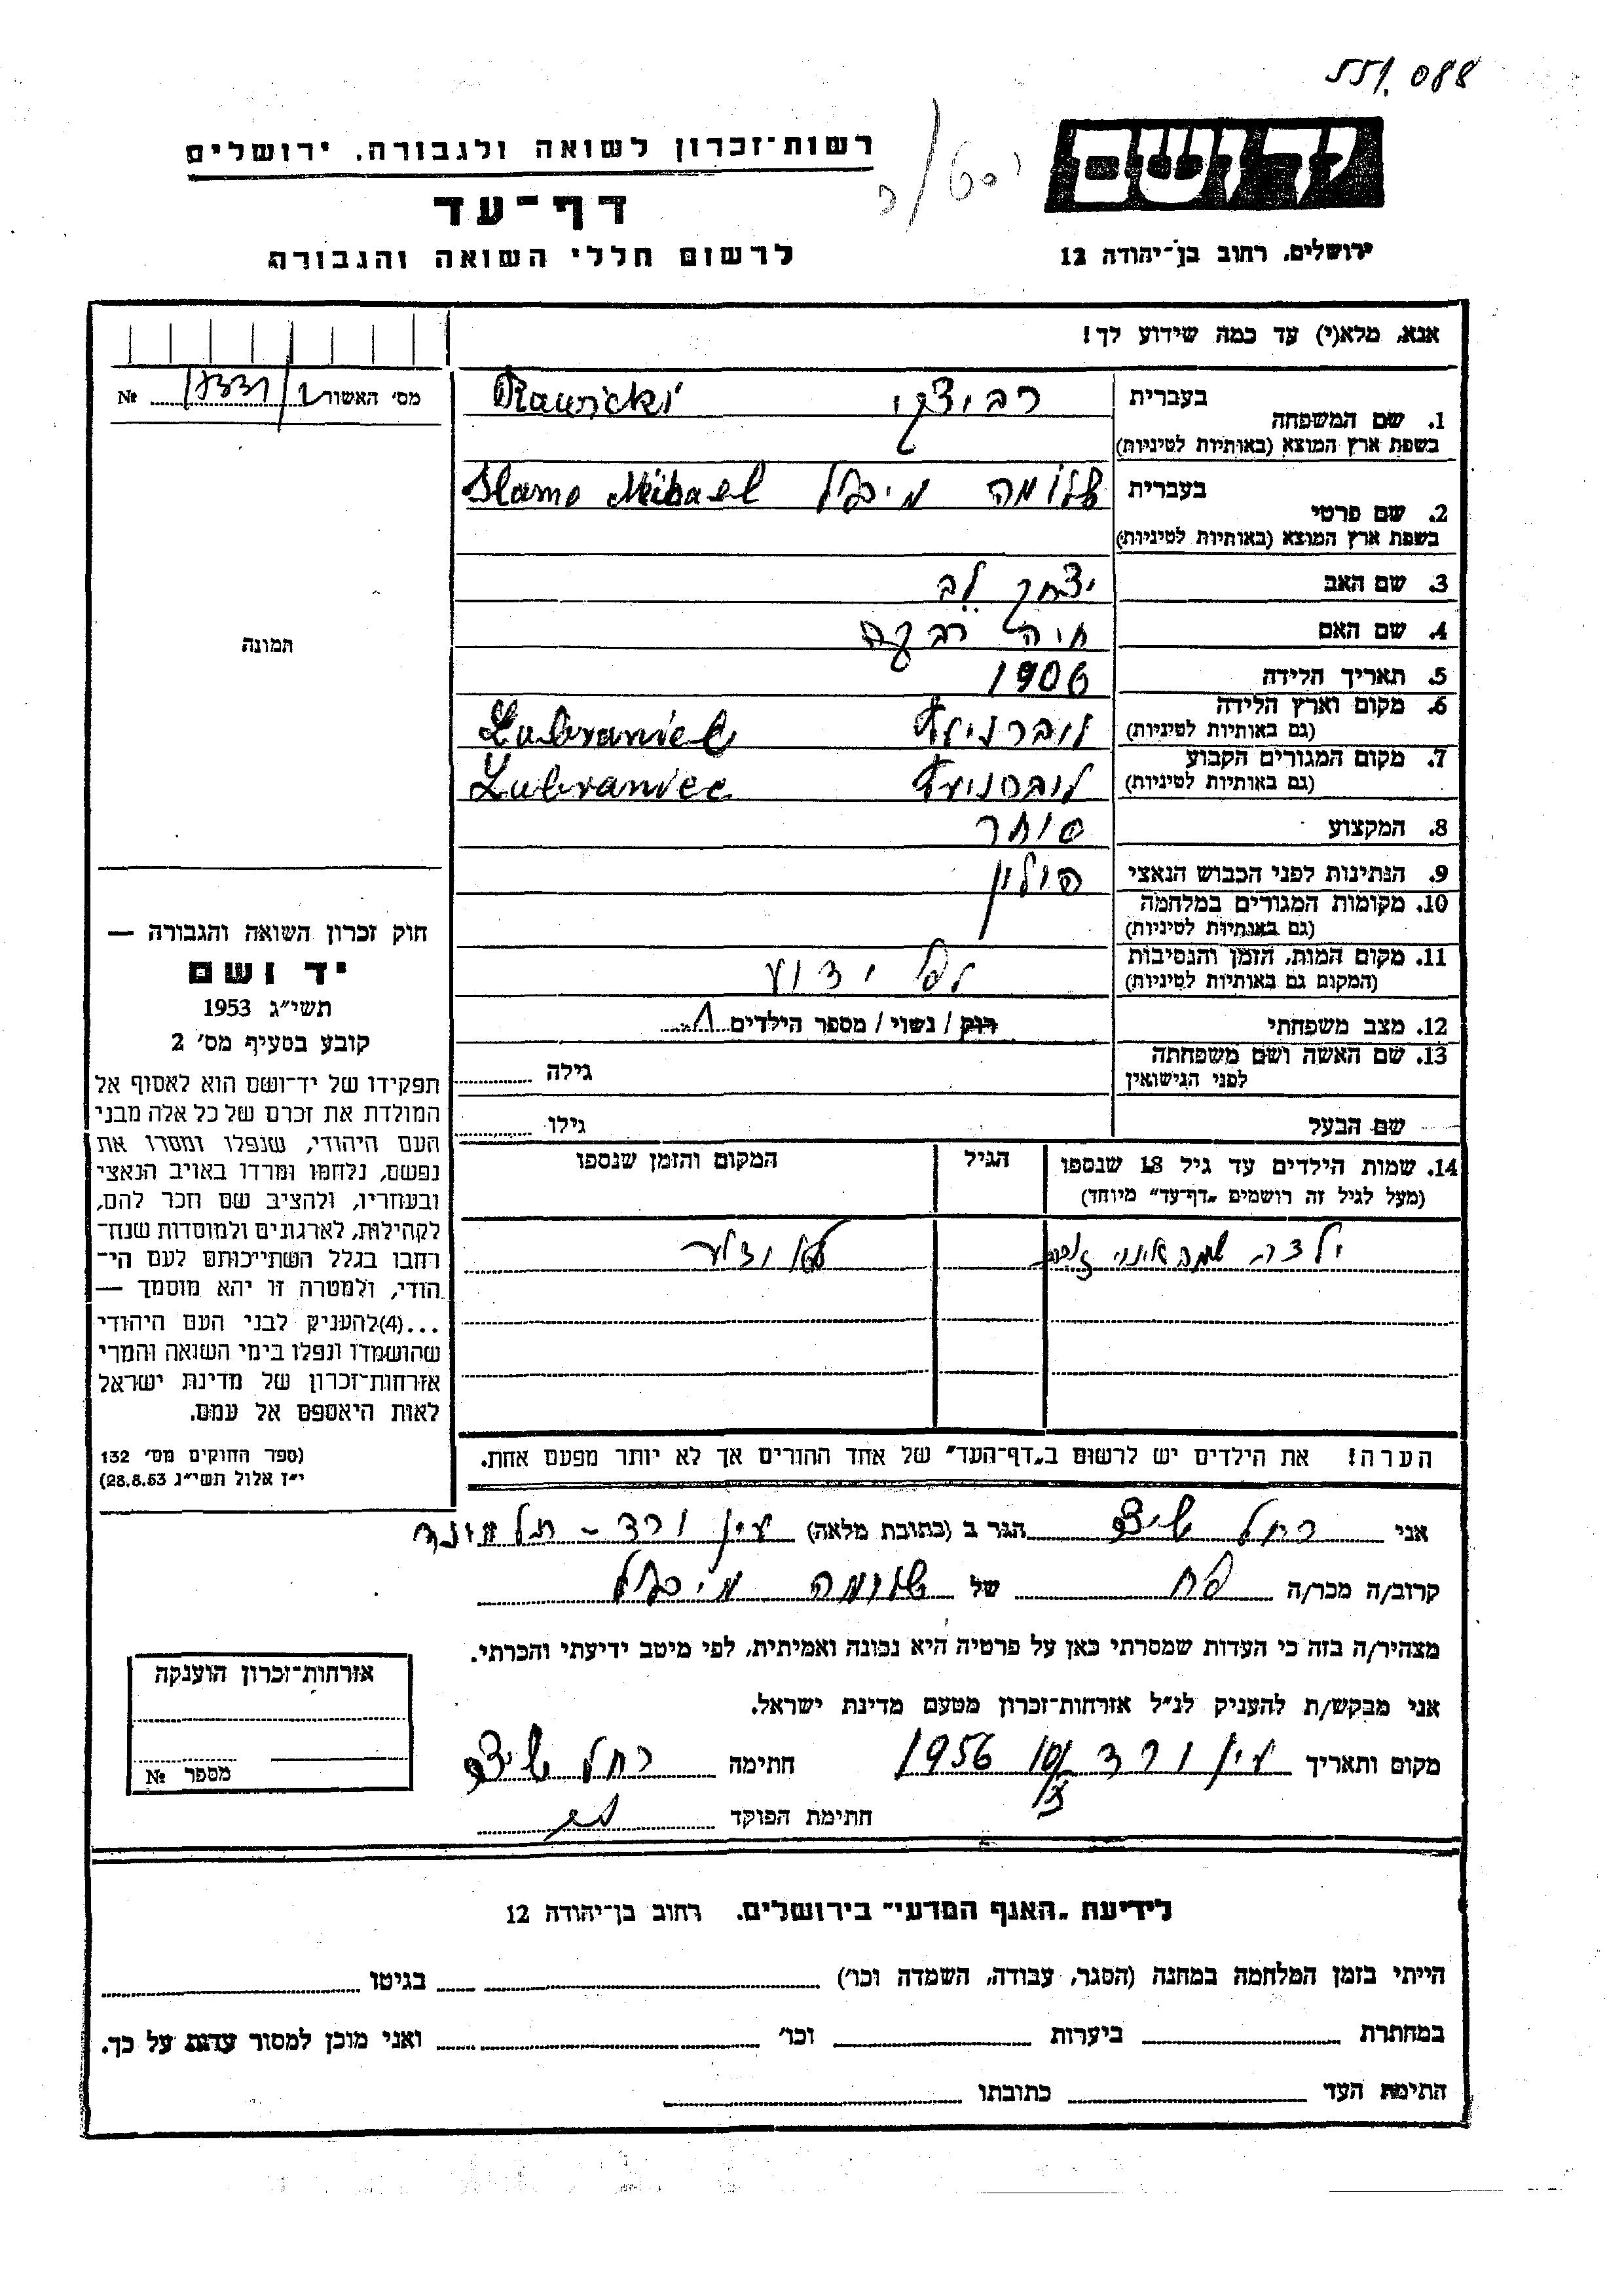 551.088
יד ושם
רשות־זכרון לשואה ולגבורה, ירושלים
דף־עד
לרשום חללי השואה והגבורה
ירושלים, רחוב בן־יהודה 12
אנא, מלא(י) עד כמה שידוע לך!
מס' האשור №
1. שם המשפחה בעברית רביצקי Rawicki
בשפת ארץ המוצא (באותיות לטיניות)
2. שם פרטי בעברית שלומה מיכאל Slamo Mihael
בשפת ארץ המוצא (באותיות לטיניות)
3. שם האב יצחק לב
4. שם האם חיה רבקה
5. תאריך הלידה 1906
6. מקום וארץ הלידה לוברניץ Lubraniec
(גם באותיות לטיניות)
7. מקום המגורים הקבוע לוברניץ Lubraniec
(גם באותיות לטיניות)
8. המקצוע סוחר
9. הנתינות לפני הכבוש הנאצי פולין
10. מקומות המגורים במלחמה
(גם באותיות לטיניות)
11. מקום המות, הזמן והנסיבות לא ידוע
(המקום גם באותיות לטיניות)
12. מצב משפחתי רוק / נשוי / מספר הילדים 1
13. שם האשה ושם משפחתה גילה
לפני הנישואין
שם הבעל גילו
14. שמות הילדים עד גיל 18 שנספו הגיל המקום והזמן שנספו
(מעל לגיל זה רושמים „דף־עד" מיוחד)
ילדה שמה אינני לא ידוע
הערה! את הילדים יש לרשום ב„דף־העד" של אחד ההורים אך לא יותר מפעם אחת.
תמונה
חוק זכרון השואה והגבורה —
יד ושם
תשי"ג 1953
קובע בסעיף מס' 2
תפקידו של יד־ושם הוא לאסוף אל
המולדת את זכרם של כל אלה מבני
העם היהודי, שנפלו ומסרו את
נפשם, נלחמו ומרדו באויב הנאצי
ובעוזריו, ולהציב שם וזכר להם,
לקהילות, לארגונים ולמוסדות שנח־
רחבו בגלל השתייכותם לעם הי־
הודי, ולמטרה זו יהא מוסמך —
...(4)להעניק לבני העם היהודי
שהושמדו ונפלו בימי השואה והמרי
אזרחות־זכרון של מדינת ישראל
לאות היאספם אל עמם.
(ספר החוקים מס' 132
י"ז אלול תשי"ג 28.8.53)
אני רחל הגר ב (כתובת מלאה) עין ורד – תל מונד
קרוב/ה מכר/ה אח של שלומה מיכאל
מצהיר/ה בזה כי העדות שמסרתי כאן על פרטיה היא נכונה ואמיתית, לפי מיטב ידיעתי והכרתי.
אני מבקש/ת להעניק לנ"ל אזרחות־זכרון מטעם מדינת ישראל.
מקום ותאריך עין ורד 1956 חתימה רחל
חתימת הפוקד
אזרחות־זכרון הוענקה
מספר №
לידיעת „האגף המדעי" בירושלים, רחוב בן־יהודה 12
הייתי בזמן המלחמה במחנה (הסגר, עבודה, השמדה וכו') בגיטו
במחתרת ביערות וכו' ואני מוכן למסור עדות על כך.
חתימת העד כתובתו